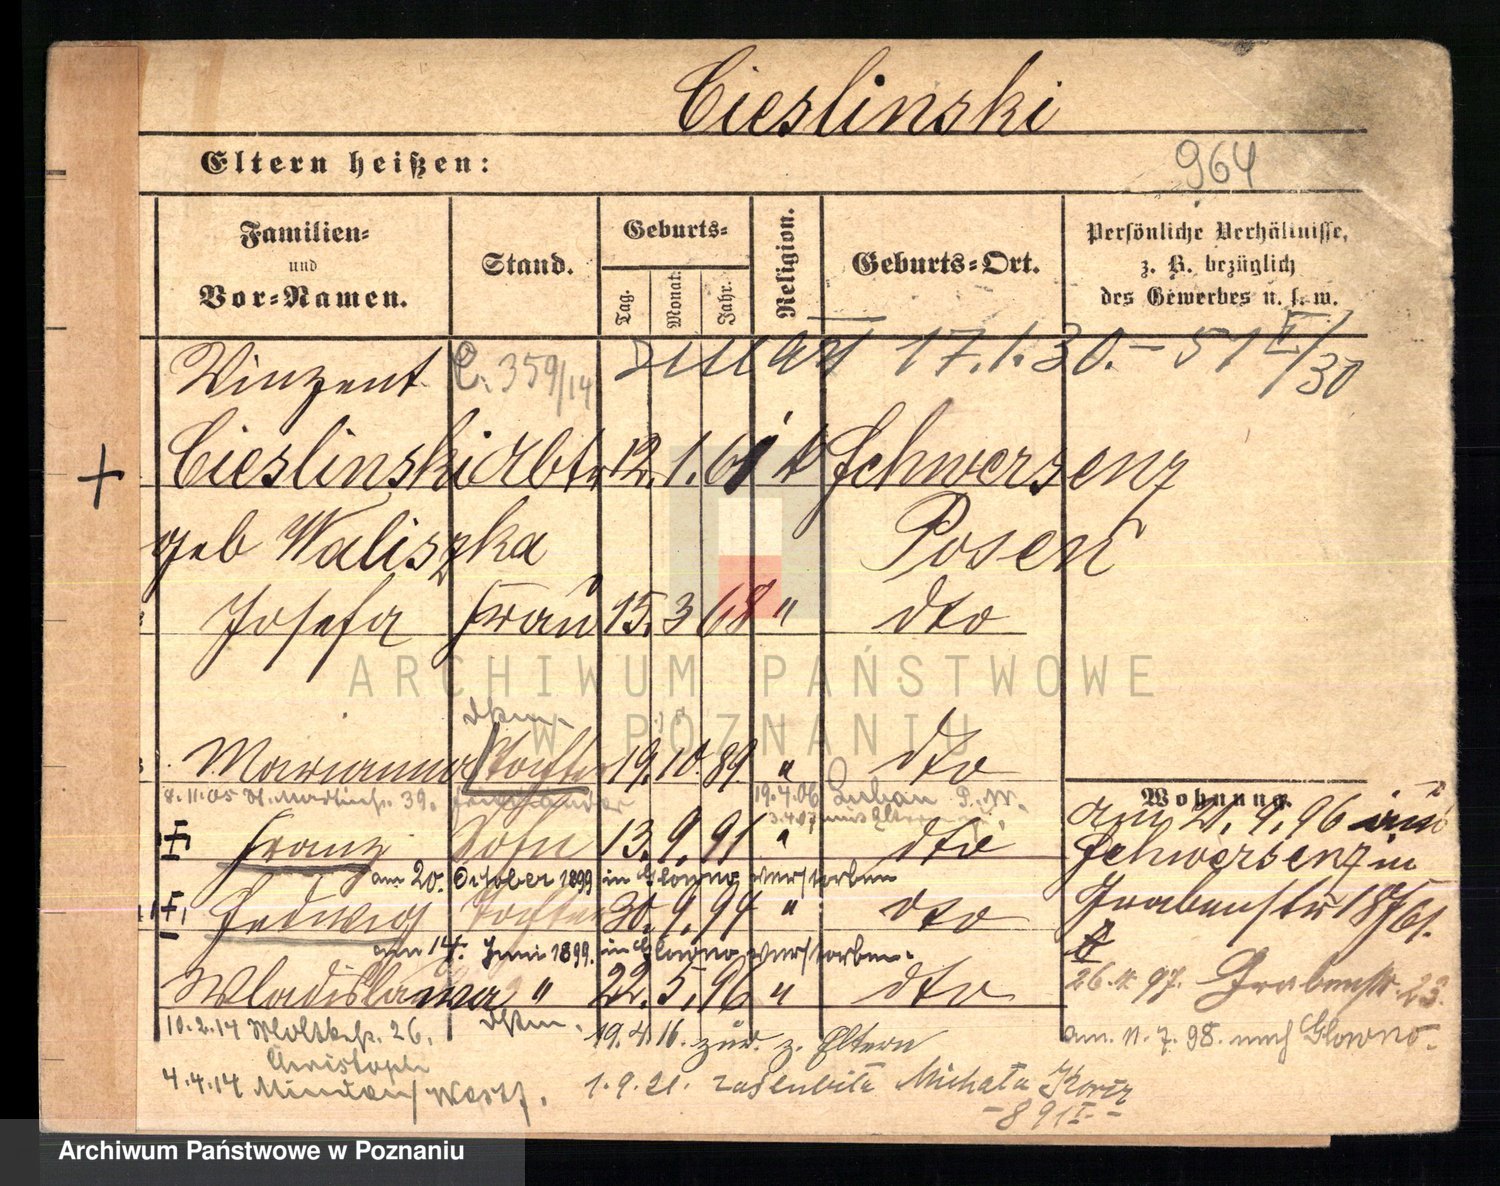 Cieslinski
Eltern heißen:
964
Familien-
und
Vor-Namen.
Stand.
Geburts-
Tag.
Monat.
Jahr.
Religion.
Geburts-Ort.
Persönliche Verhältnisse,
z. B. bezüglich
des Gewerbes u. s. w.
Vinzent
C. 359/14
zmarł 17.1.30. – 51 I/30
Cieslinski Arbtr 12. 1. 61 k Schwersenz
geb Waliszka Posen
Josefa Frau 15. 3 68 " dto
Marianna Tochter 19. 10. 89 " dto
8.11.05 St. Martinstr. 39.
19.4.06
Wohnung.
am 21. 9. 96 aus
Franz Sohn 13. 9. 91 " dto
Schwersenz in
am 20. October 1899 in Glowno verstorben
Hedwig Tochter 30. 9. 94 " dto
Grabenstr
am 14. Juni 1899. in Glowno verstorben.
26. 97. Grabenstr. 23.
Wladislawa " 22. 5. 96 " dto
10.2.14 Moltkestr. 26.
19.4.16. zur. z. Eltern
am. 11. 7. 98. nach Glowno.
Christoph
4.4.14 Minden/Westf.
1.9.21. zaślubiła Michała
- 891 I. -
ARCHIWUM PAŃSTWOWE
W POZNANIU
Archiwum Państwowe w Poznaniu